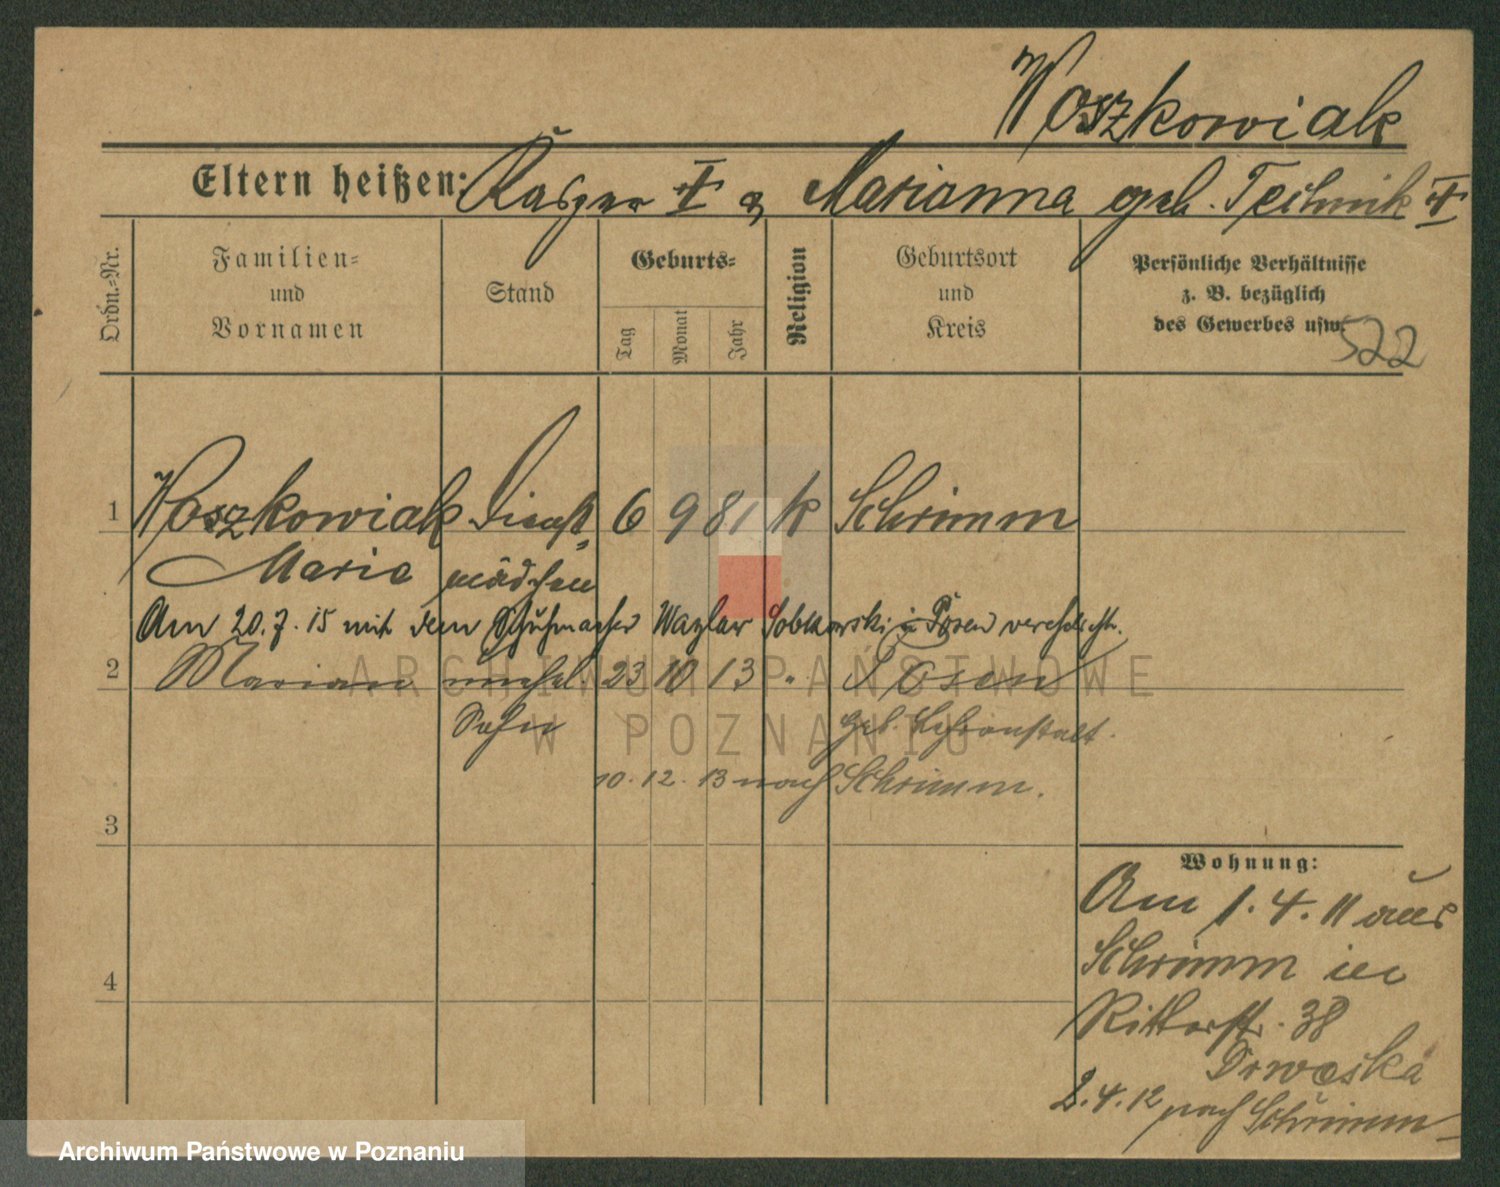 Woszkowiak
Eltern heißen: Kasper † & Marianna geb. Technik †
Ordn.-Nr.
Familien- und Vornamen
Stand
Geburts-
Tag
Monat
Jahr
Religion
Geburtsort und Kreis
Persönliche Verhältnisse
z. B. bezüglich
des Gewerbes usw.
522
1 Woszkowiak Dienst- 6 9 81 k Schrimm
Maria mädchen
Am 20.7.15 mit dem Schuhmacher Wazlaw Sobkowski in Posen verehelicht.
2 Marian unehel. 23 10 13 " Posen
Sohn geb.
10.12.13 nach Schrimm.
3
Wohnung:
Am 1.4.11 aus
Schrimm in
4
Ritterstr. 38
Drweska
2.4.12 nach Schrimm
ARCHIWUM PAŃSTWOWE
W POZNANIU
Archiwum Państwowe w Poznaniu